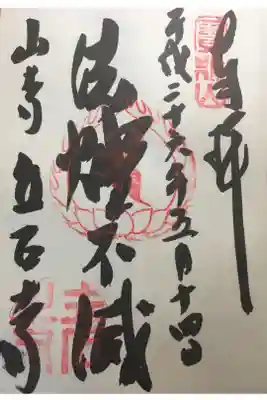 奉拝
平成二十六年五月十四日
法燈不滅
山寺 立石寺